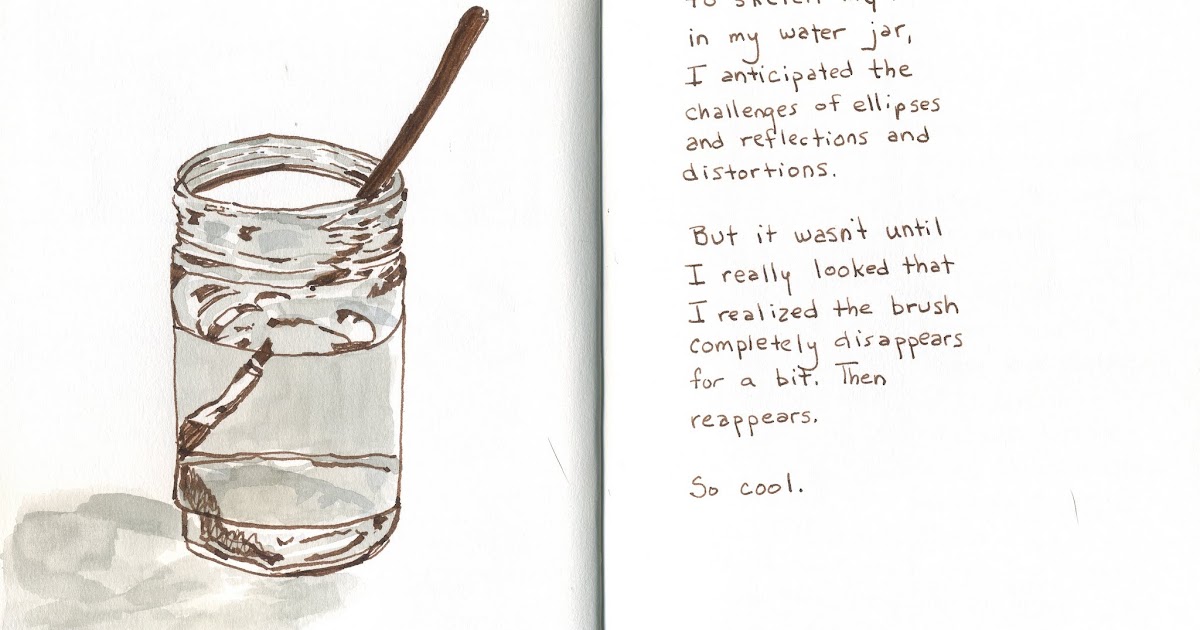 in my water jar,
I anticipated the
challenges of ellipses
and reflections and
distortions.
But it wasn't until
I really looked that
I realized the brush
completely disappears
for a bit. Then
reappears.
So cool.